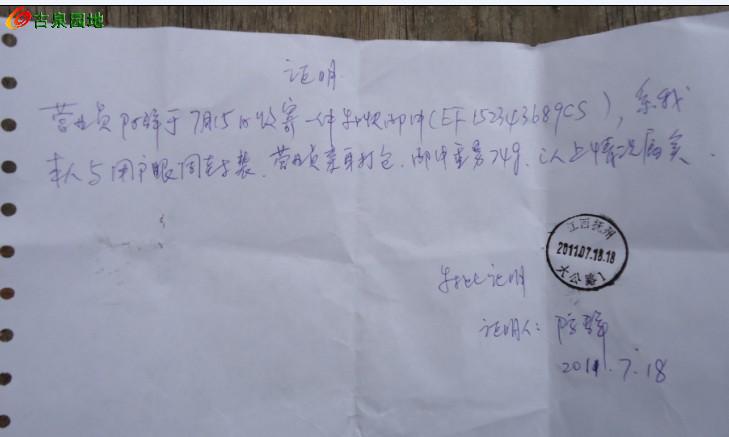 古泉园地
证明
营业员陈辉于7月15日收寄一件特快邮件(EF152343689CS),系我
本人与用户眼同封装、营业员亲自打包、邮件重为74g,以上情况属实.
江西抚州
2011.07.18.18
大公路
特此证明
证明人:陈辉
2011.7.18